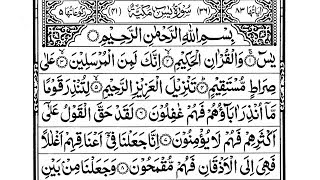 سُوْرَةُ يٰسٓ مَكِّيَّةٌ
بِسْمِ اللّٰهِ الرَّحْمٰنِ الرَّحِيْمِ
يٰسٓ ۚ وَالْقُرْاٰنِ الْحَكِيْمِ ۙ اِنَّكَ لَمِنَ الْمُرْسَلِيْنَ ۙ عَلٰى
صِرَاطٍ مُّسْتَقِيْمٍ ؕ تَنْزِيْلَ الْعَزِيْزِ الرَّحِيْمِ ۙ لِتُنْذِرَ قَوْمًا
مَّآ اُنْذِرَ اٰبَآؤُهُمْ فَهُمْ غٰفِلُوْنَ لَقَدْ حَقَّ الْقَوْلُ عَلٰٓى
اَكْثَرِهِمْ فَهُمْ لَا يُؤْمِنُوْنَ اِنَّا جَعَلْنَا فِيْٓ اَعْنَاقِهِمْ اَغْلٰلًا
فَهِيَ اِلَى الْاَذْقَانِ فَهُمْ مُّقْمَحُوْنَ وَجَعَلْنَا مِنْۢ بَيْنِ